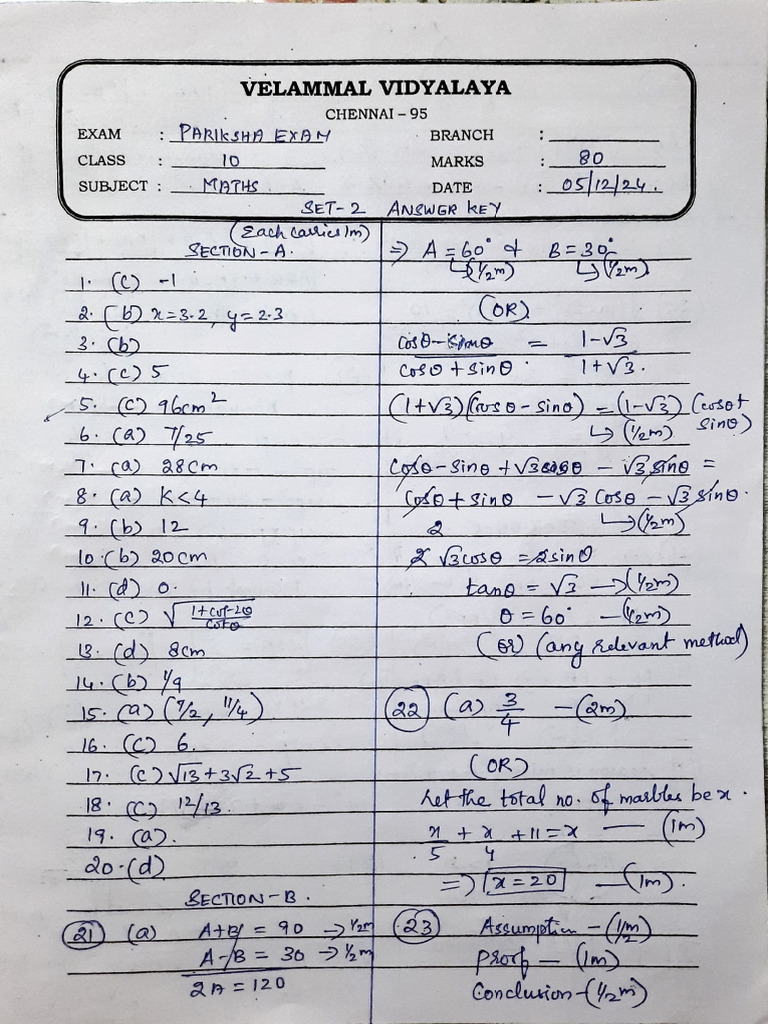 VELAMMAL VIDYALAYA
CHENNAI – 95
EXAM : PARIKSHA EXAM
BRANCH :
CLASS : 10
MARKS : 80
SUBJECT : MATHS
DATE : 05/12/24.
SET-2 ANSWER KEY
(Each carries 1m)
SECTION-A.
1. (c) -1
2. (b) x=3.2, y=2.3
3. (b)
4. (c) 5
5. (c) 96cm²
6. (a) 7/25
7. (a) 28cm
8. (a) K<4
9. (b) 12
10. (b) 20cm
11. (d) 0.
12. (c)
13. (d) 8cm
14. (b) 1/9
15. (a) (7/2, 11/4)
16. (c) 6.
17. (c) √13+3√2+5
18. (c) 12/13.
19. (a).
20. (d)
SECTION-B.
21 (a) A+B = 90 → 1/2m
A-B = 30 → 1/2m
2A = 120
⇒ A=60° & B=30°
↳(1/2m) ↳(1/2m)
(OR)
cosθ-sinθ = 1-√3
cosθ+sinθ 1+√3.
(1+√3)(cosθ-sinθ) = (1-√3) (cosθ+
sinθ)
↳ (1/2m)
cosθ-sinθ+√3cosθ - √3sinθ =
cosθ+sinθ - √3cosθ-√3sinθ.
↳(1/2m)
2
2 √3cosθ = 2sinθ
tanθ = √3 →(1/2m)
θ = 60° –(1/2m)
(or) (any relevant method)
22 (a) 3/4 –(2m)
(OR)
Let the total no. of marbles be x.
x/5 + x/4 +11=x — (1m)
⇒ x=20 —(1m).
23 Assumption –(1/2m)
Proof – (1m)
Conclusion –(1/2m)